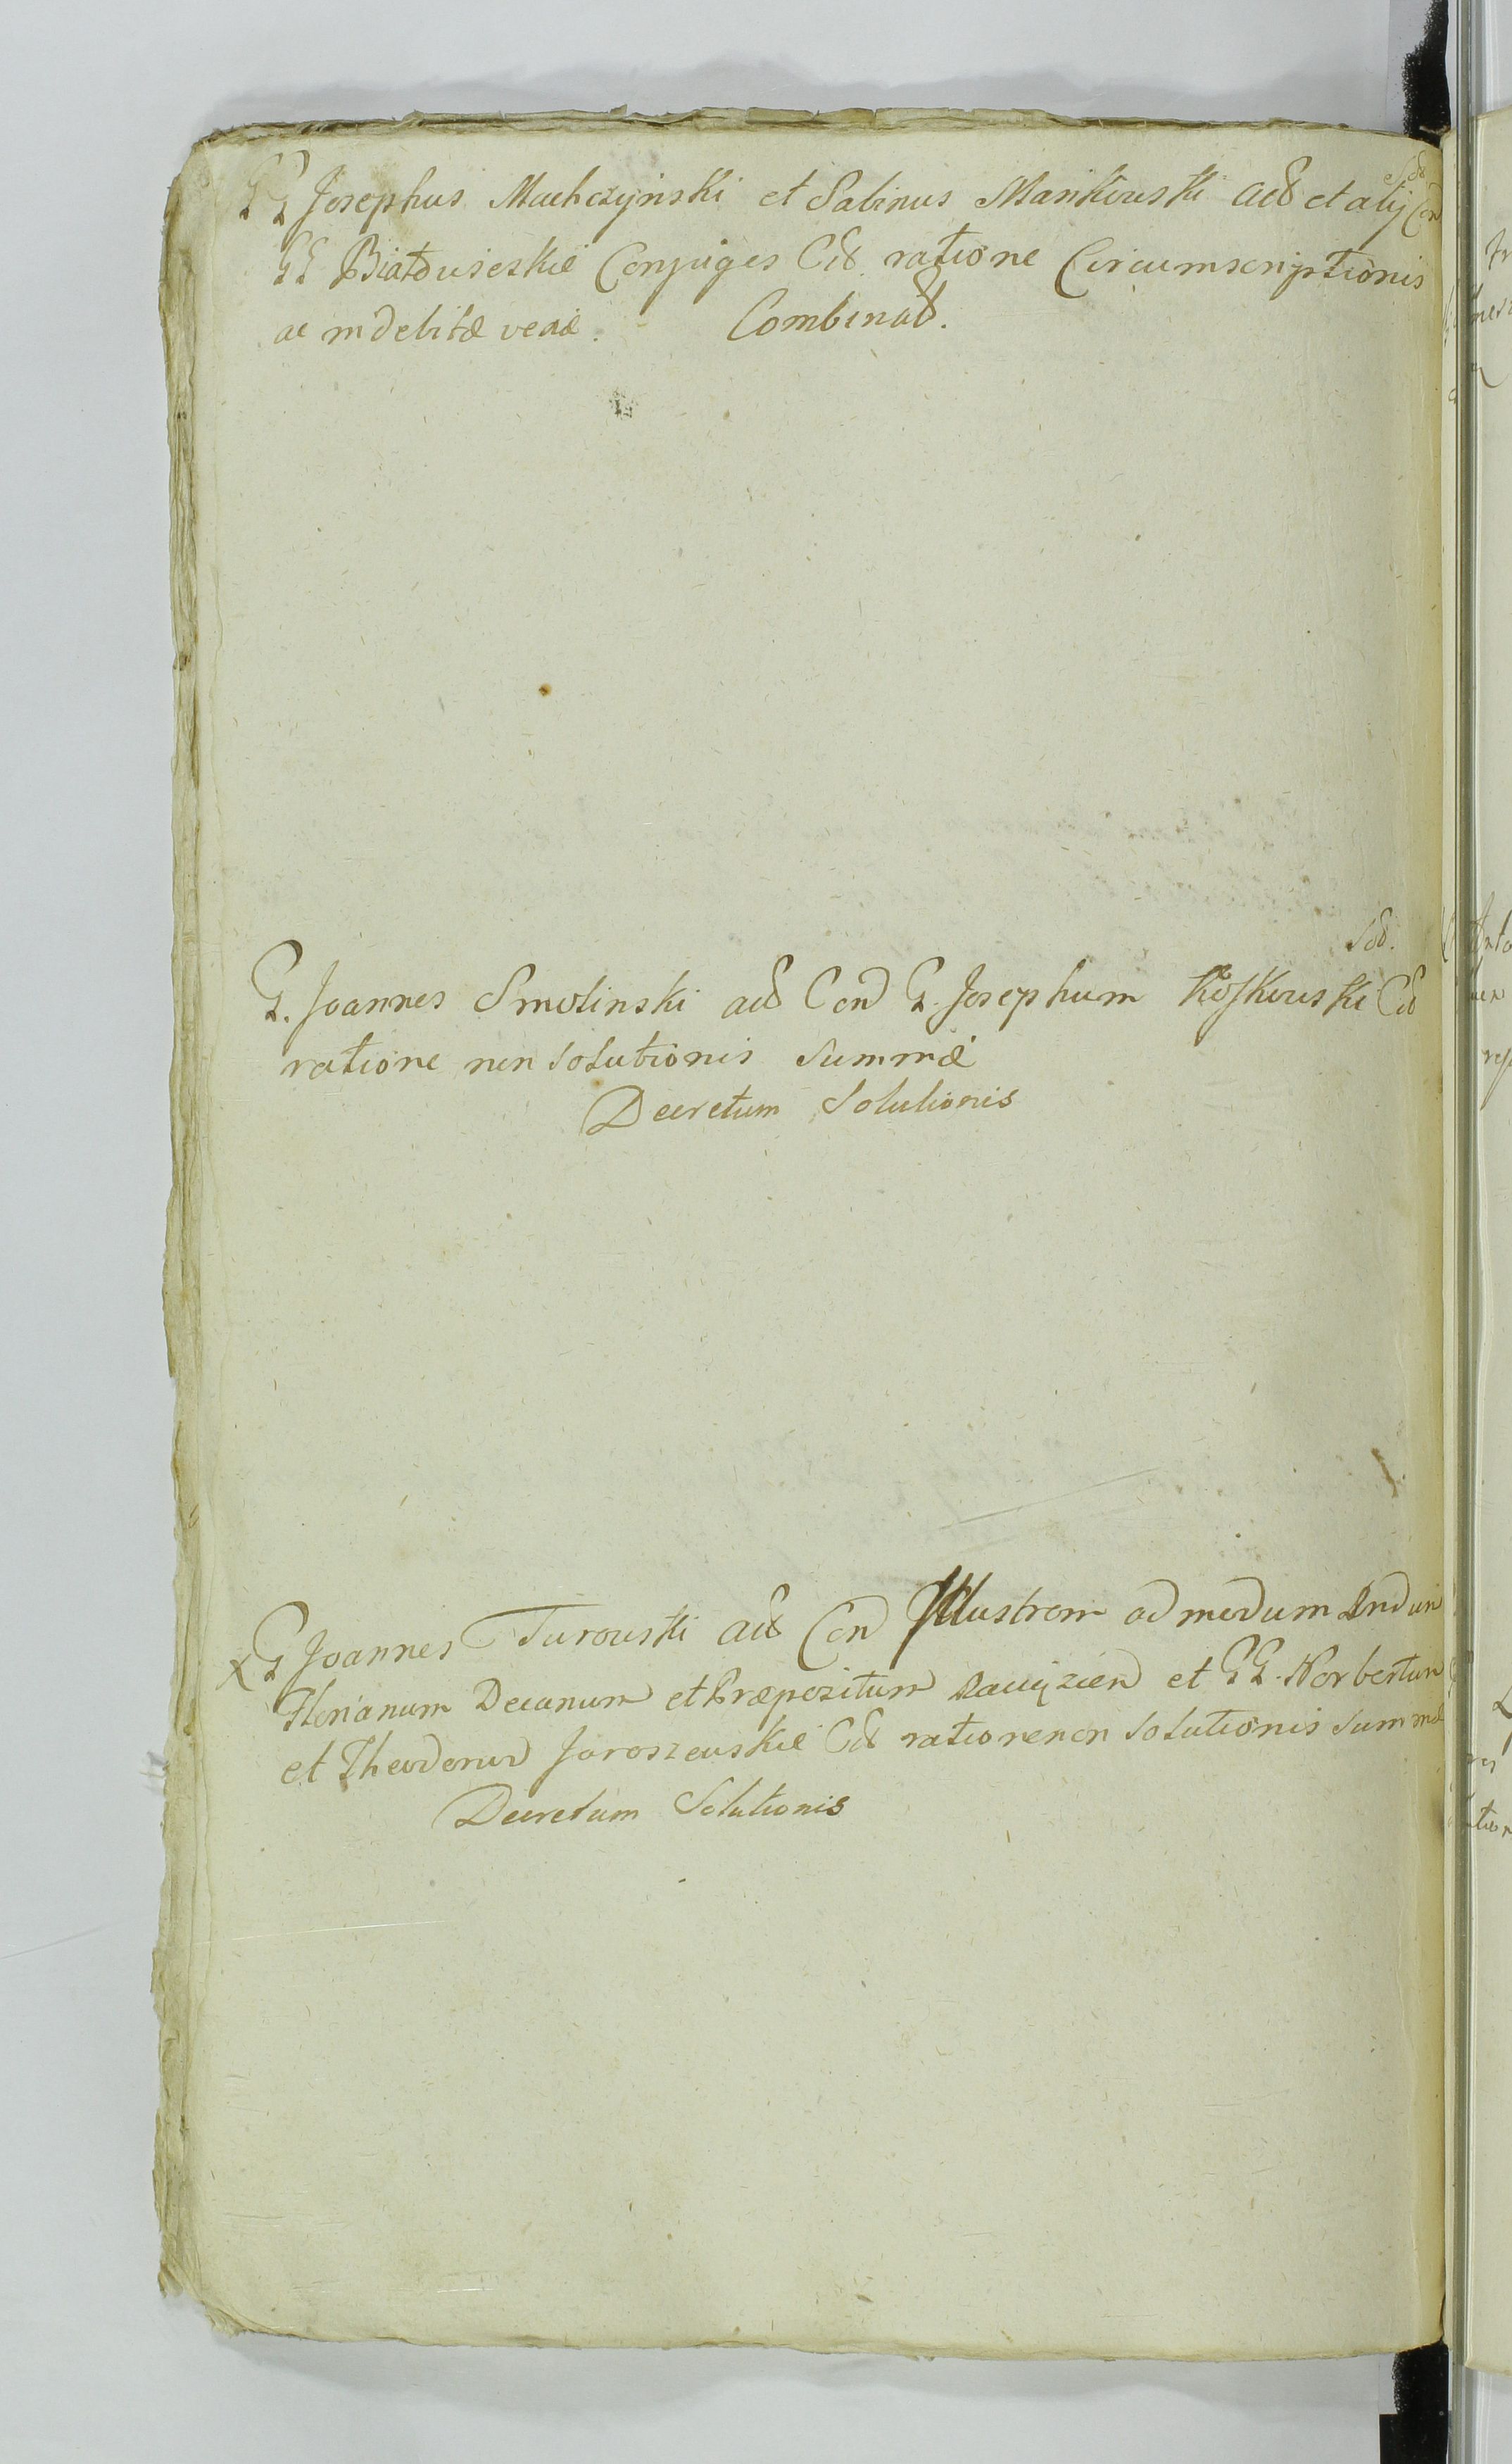 GG Josephus Machczyński et Sabinus Mankowski act et alij Con
GG Białowieskie Conjuges Cit ratione Circumscriptionis
ac indebitæ vexæ. Combinat.
Sol.
G. Joannes Smolinski act Con G. Josephum Koskowski Cit
ratione non Solutionis Summæ
Decretum Solutionis
G Joannes Turowski act Con Illustrem admodum Rndum
Florianum Decanum et Præpozitum et GG. Norbertum
et Theodorum Jaroszewskie Cit ratione non Solutionis Summæ
Decretum Solutionis